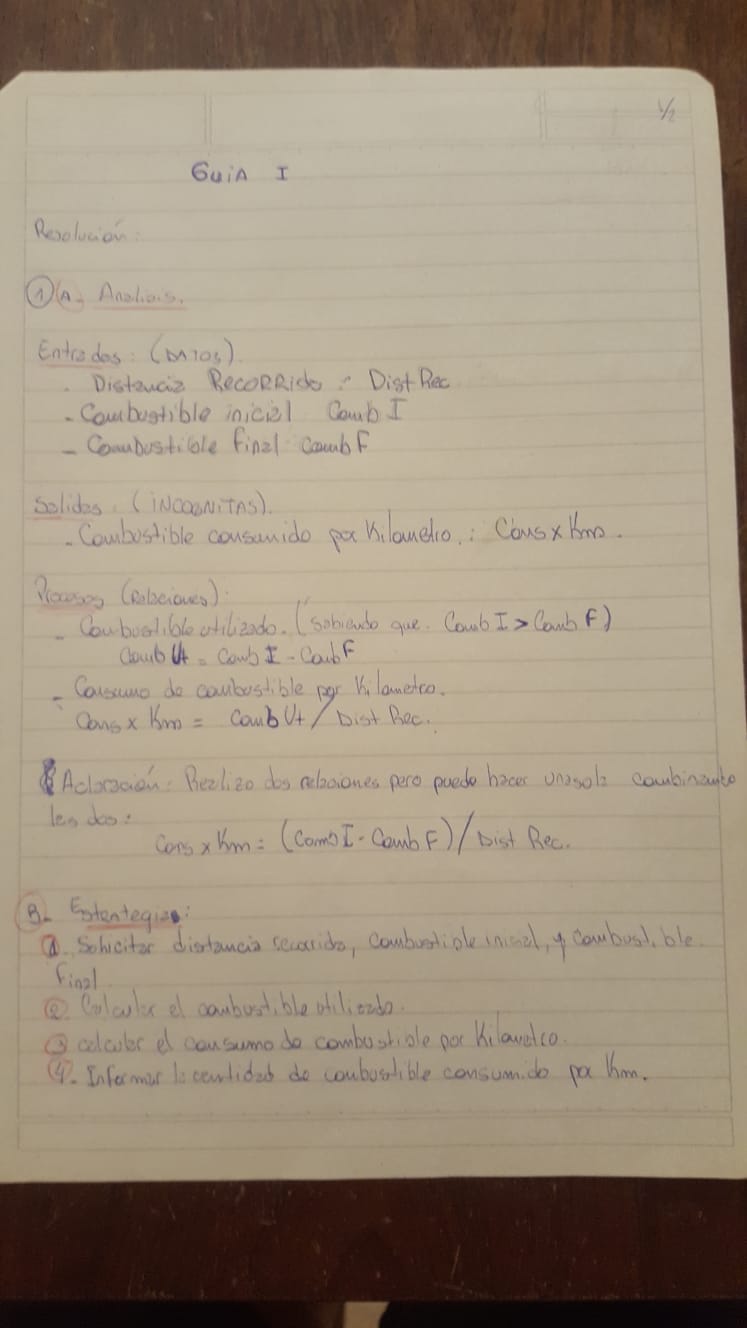 1/2
Guia I
Resolución:
① A. Analisis.
Entradas: (DATOS).
. Distancia RECORRida : Dist Rec
- Combustible inicial Comb I
- Combustible final Comb F
Salidas: (INCOGNITAS).
- Combustible consumido por Kilometro.: Cons x Km.
Procesos (Relaciones):
- Combustible utilizado. (sabiendo que. Comb I > Comb F)
Comb Ut = Comb I - Comb F
- Consumo de combustible por Kilometro.
Cons x Km = Comb Ut / Dist Rec.
Aclaración: Realizo dos relaciones pero puedo hacer una sola combinando
las dos:
Cons x Km = (Comb I - Comb F) / Dist Rec.
B- Estrategia:
1. Solicitar distancia recorrida, combustible inicial, y combustible
final
② Calcular el combustible utilizado.
③ calcular el consumo de combustible por Kilometro.
④. Informar la cantidad de combustible consumido por Km.